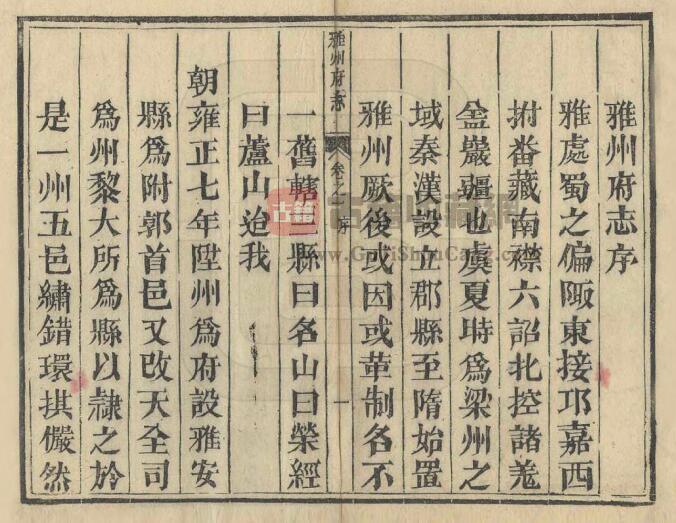 雅州府志序
雅處蜀之偏陬東接邛嘉西
拊畨藏南襟六詔北控諸羗
金巖疆也虞夏時爲梁州之
域秦漢設立郡縣至隋始置
雅州厥後或因或革制名不
雅州府志
卷之
序
一
一舊轄三縣曰名山曰榮經
曰蘆山迨我
朝雍正七年陞州爲府設雅安
縣爲附郭首邑又改天全司
爲州黎大所爲縣以隷之於
是一州五邑繡錯環拱儼然
古籍
www.GujiShouCang.com